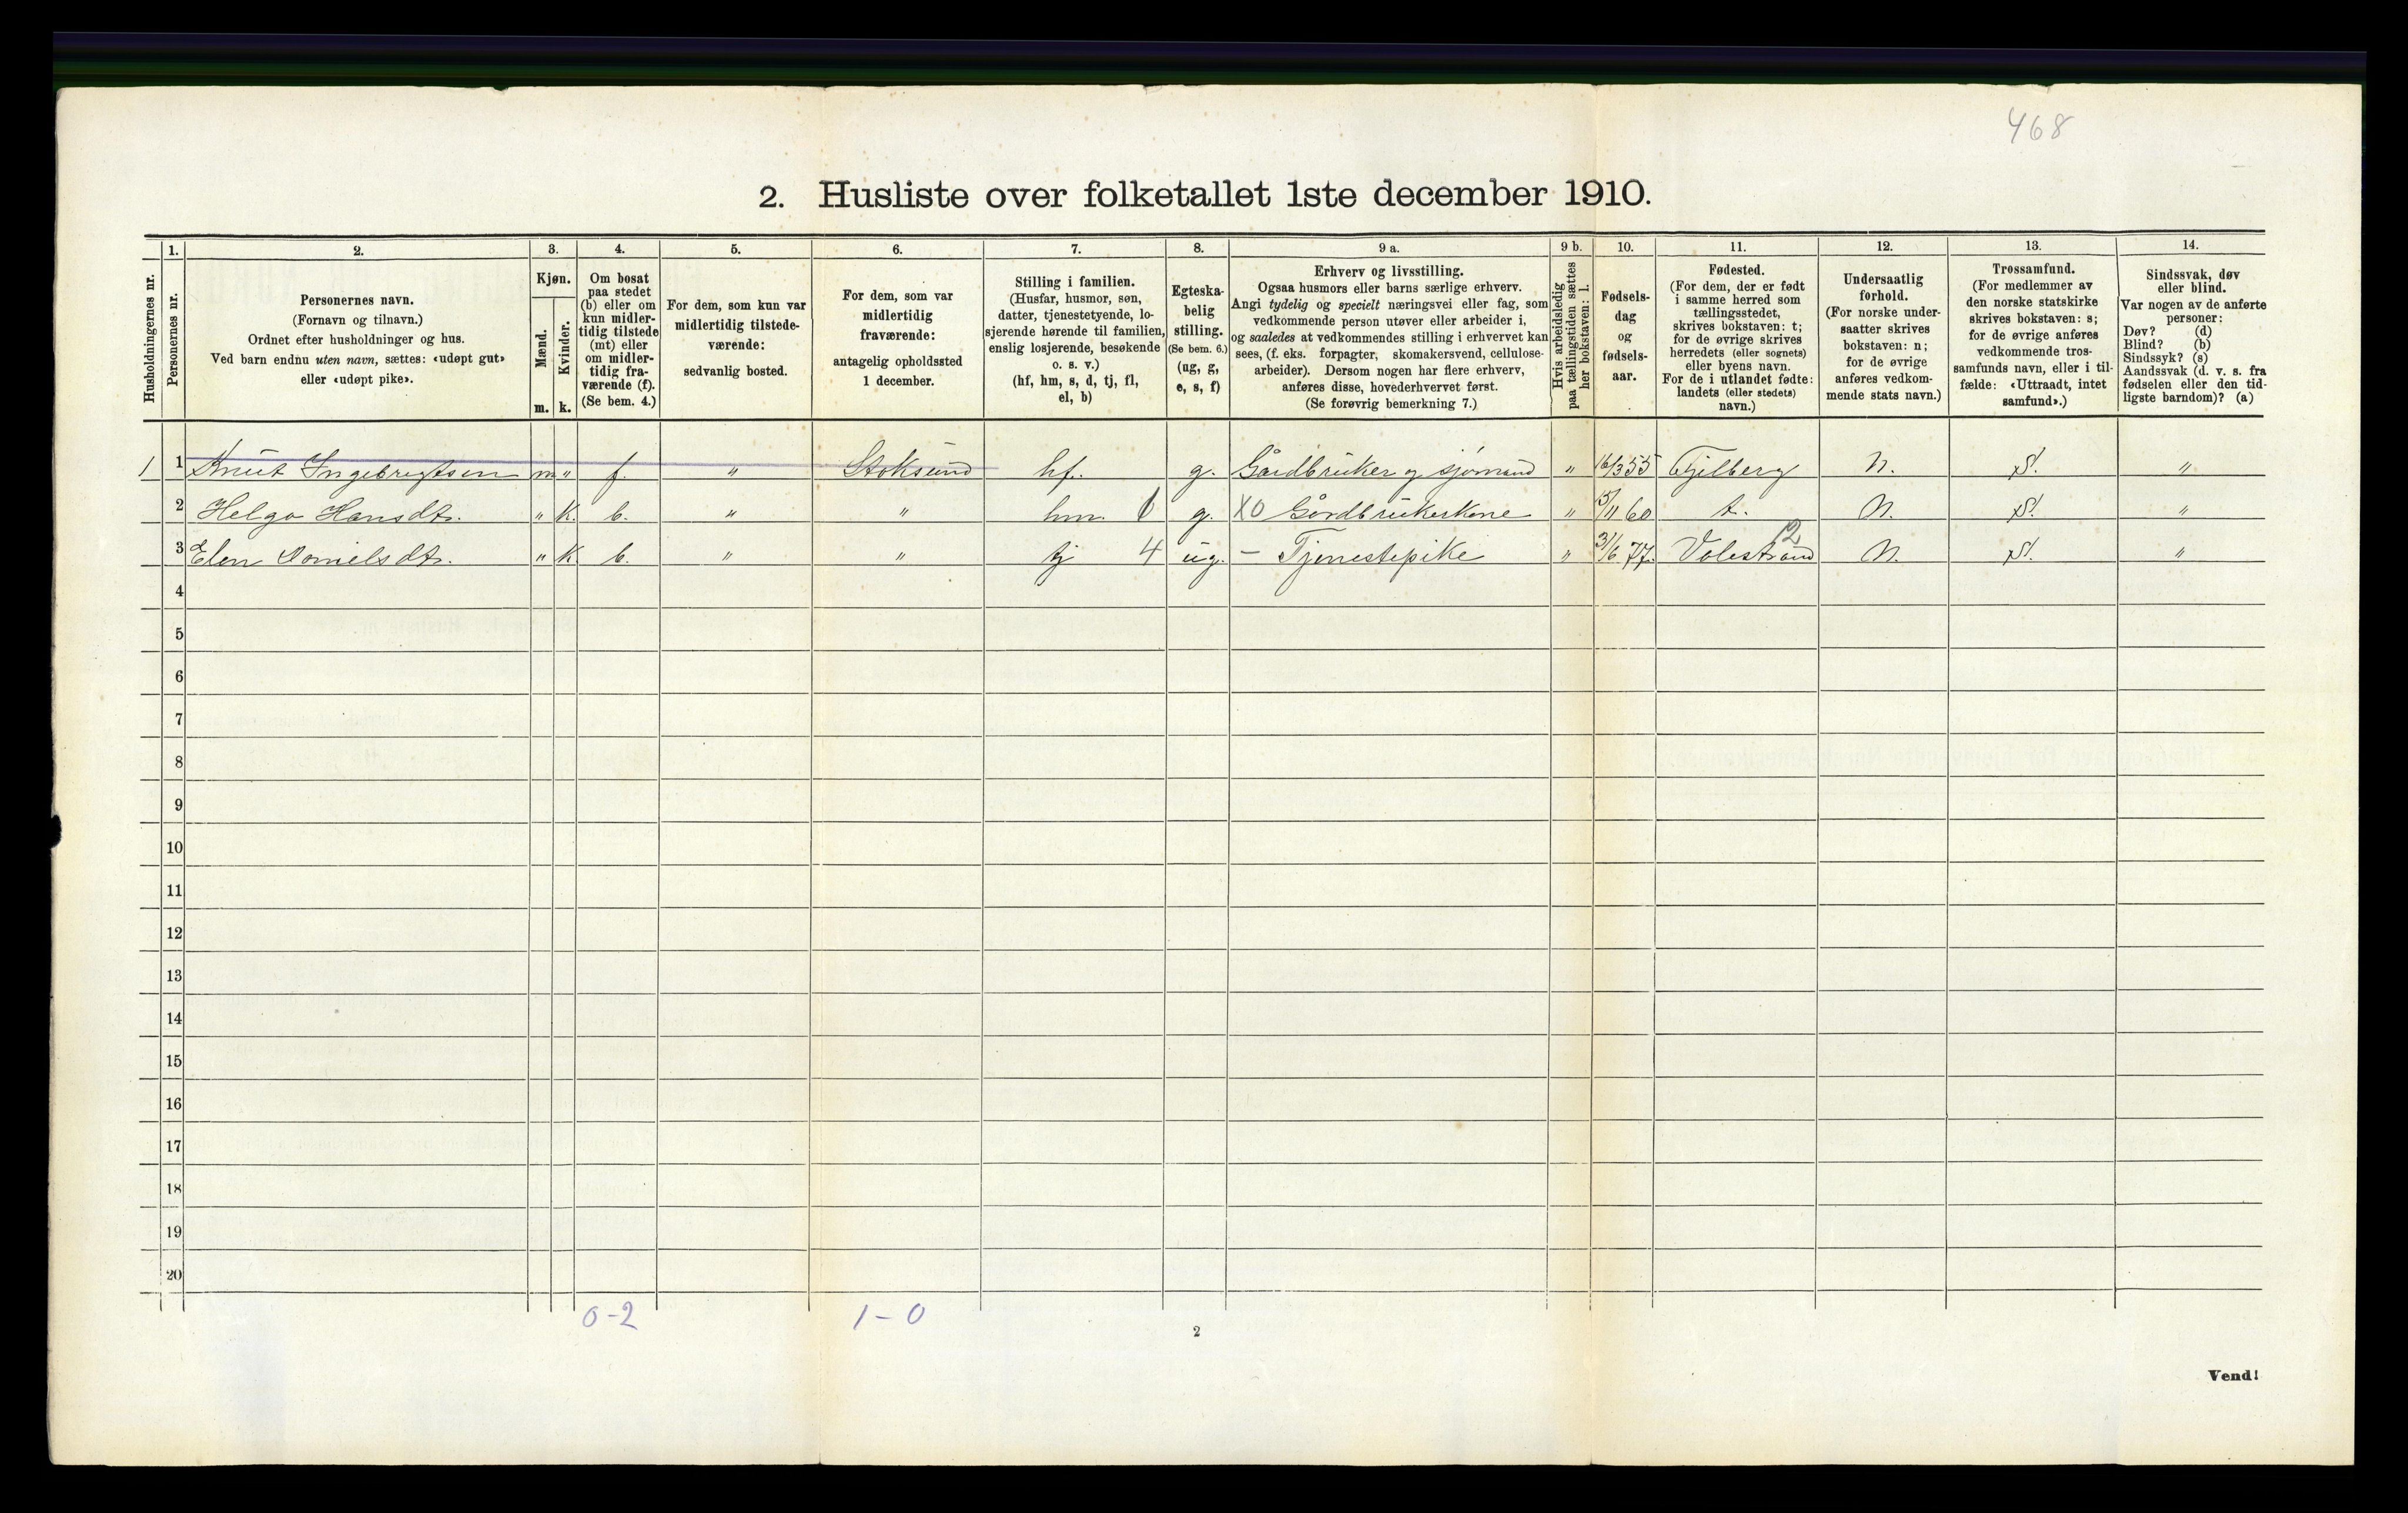 468
2. Husliste over folketallet 1ste december 1910.
Husholdningernes nr.
1.
Personernes nr.
2.
Personernes navn.
(Fornavn og tilnavn.)
Ordnet efter husholdninger og hus.
Ved barn endnu uten navn, sættes: «udøpt gut»
eller «udøpt pike».
3.
Kjøn.
Mænd.
m.
Kvinder.
k.
4.
Om bosat
paa stedet
(b) eller om
kun midler-
tidig tilstede
(mt) eller
om midler-
tidig fra-
værende (f).
(Se bem. 4.)
5.
For dem, som kun var
midlertidig tilstede-
værende:
sedvanlig bosted.
6.
For dem, som var
midlertidig
fraværende:
antagelig opholdssted
1 december.
7.
Stilling i familien.
(Husfar, husmor, søn,
datter, tjenestetyende, lo-
sjerende hørende til familien,
enslig losjerende, besøkende
o. s. v.)
(hf, hm, s, d, tj, fl,
el, b)
8.
Egteska-
belig
stilling.
(Se bem. 6.)
(ug, g,
e, s, f)
9 a.
Erhverv og livsstilling.
Ogsaa husmors eller barns særlige erhverv.
Angi tydelig og specielt næringsvei eller fag, som
vedkommende person utøver eller arbeider i,
og saaledes at vedkommendes stilling i erhvervet kan
sees, (f. eks. forpagter, skomakersvend, cellulose-
arbeider). Dersom nogen har flere erhverv,
anføres disse, hovederhvervet først.
(Se forøvrig bemerkning 7.)
9 b.
Hvis arbeidsledig
paa tællingstiden sættes
her bokstaven: l.
10.
Fødsels-
dag
og
fødsels-
aar.
11.
Fødested.
(For dem, der er født
i samme herred som
tællingsstedet,
skrives bokstaven: t;
for de øvrige skrives
herredets (eller sognets)
eller byens navn.
For de i utlandet fødte:
landets (eller stedets)
navn.)
12.
Undersaatlig
forhold.
(For norske under-
saatter skrives
bokstaven: n;
for de øvrige
anføres vedkom-
mende stats navn.)
13.
Trossamfund.
(For medlemmer av
den norske statskirke
skrives bokstaven: s;
for de øvrige anføres
vedkommende tros-
samfunds navn, eller i til-
fælde: «Uttraadt, intet
samfund».)
14.
Sindssvak, døv
eller blind.
Var nogen av de anførte
personer:
Døv? (d)
Blind? (b)
Sindssyk? (s)
Aandssvak (d. v. s. fra
fødselen eller den tid-
ligste barndom)? (a)
1 1 Knut Ingebrigtsen m " f. " Stoksund hf. g. Gårdbruker og sjømand " 16/3 55 Fjelberg N. S. "
2 Helga Hansdtr. " K. b. " " hm. 1 g. X0 Gårdbrukerkone " 15/11 60 t. N. S. "
3 Elen Danielsdtr. " K b. " " tj 4 ug. – Tjenestepike " 3/6 77. Valestrand 12 N. S. "
4
5
6
7
8
9
10
11
12
13
14
15
16
17
18
19
20
0-2 1-0
2
Vend!